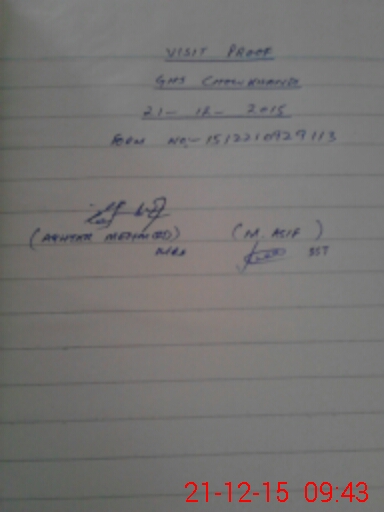 VISIT PROOF
GHS CHAK KHANDA
21- 12- 2015
FORM NO:- 1512210929113
(AKHTAR MEHMOOD) (M. ASIF)
MEA SST
21-12-15 09:43